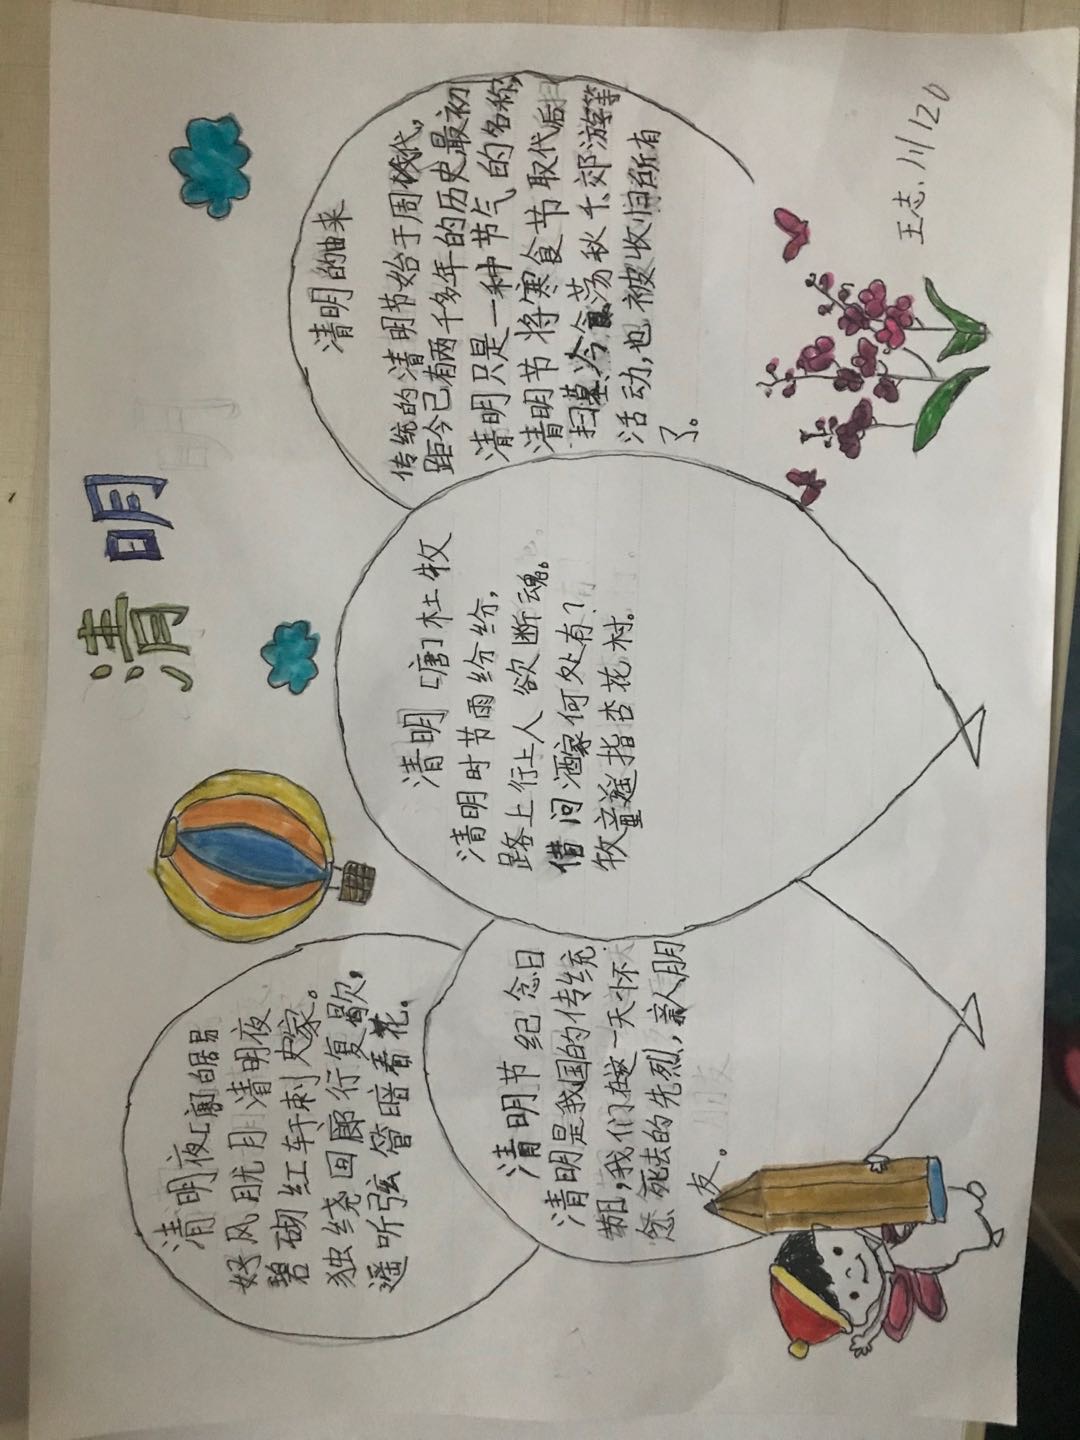 清明
清明夜[唐]白居易
好风胧月清明夜
碧砌红轩刺史家。
独绕回廊行复歇,
遥听弦管暗看花。
清明节 纪念日
清明是我国的传统
节日,我们在这一天怀
念死去的先烈,亲人朋
友。
清明[唐]杜牧
清明时节雨纷纷,
路上行人欲断魂。
借问酒家何处有?
牧童遥指杏花村。
清明的由来
传统的清明节始于周代,
距今已有两千多年的历史最初
清明只是一种节气的名称,
清明节将寒食节取代后
扫墓冷食荡秋千郊游等
活动,也被收归所有
了。
王志川120